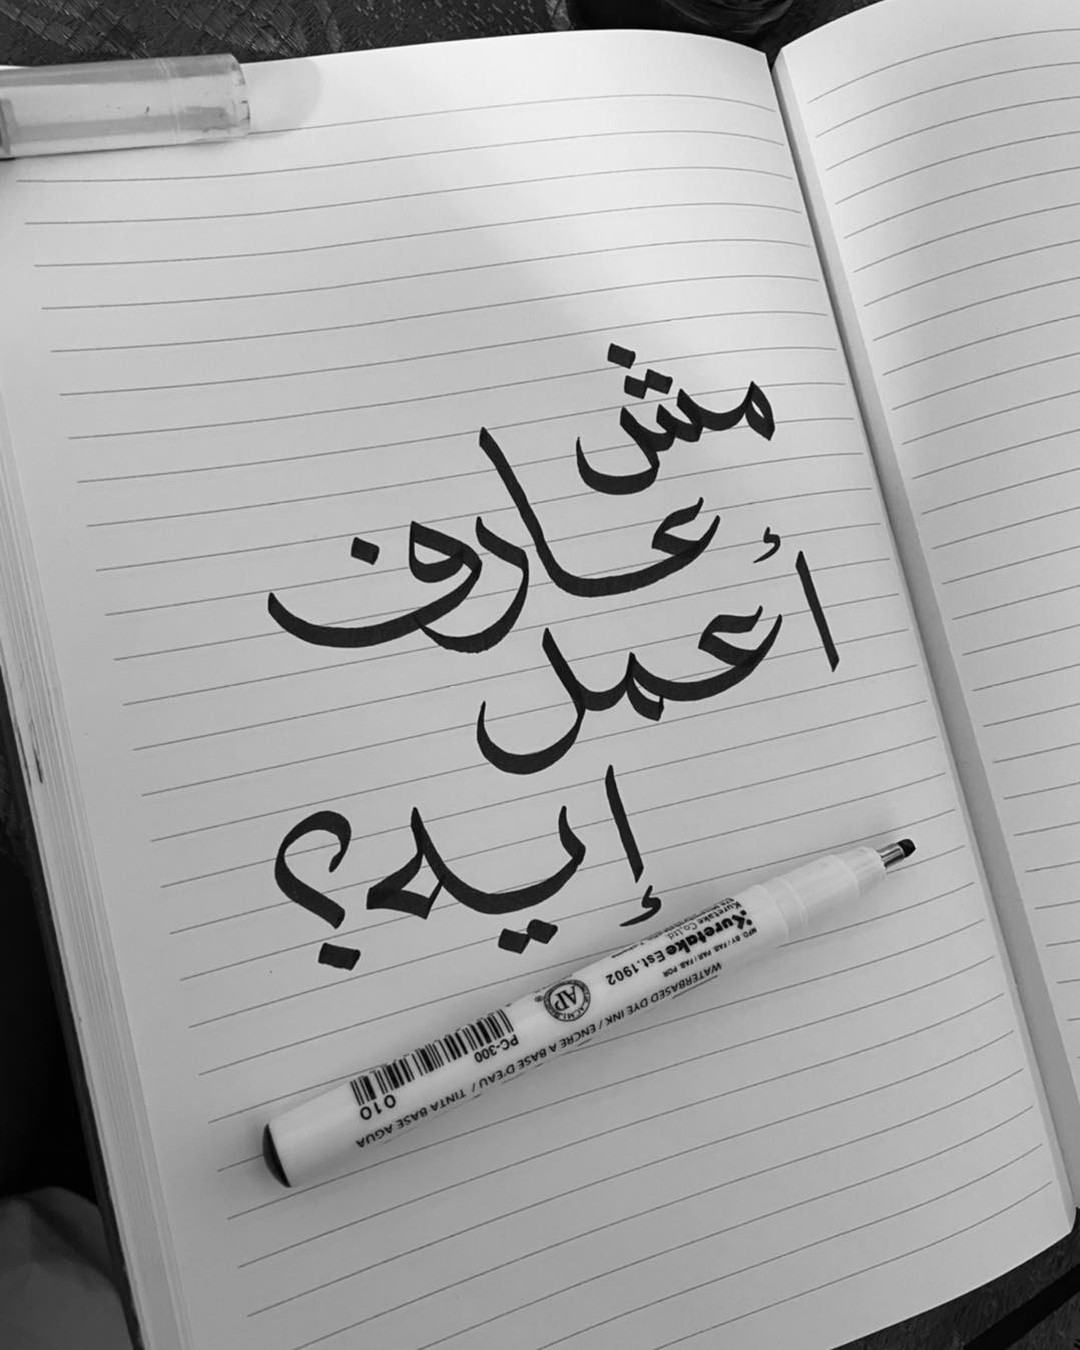 مش
عارف
أعمل
إيه؟
Kuretake Co.,Ltd.
Kuretake Est.1902
MFD. BY / FAB. PAR / FAB. POR
WATERBASED DYE INK / ENCRE A BASE D'EAU / TINTA BASE AGUA
AP
PC-300
010